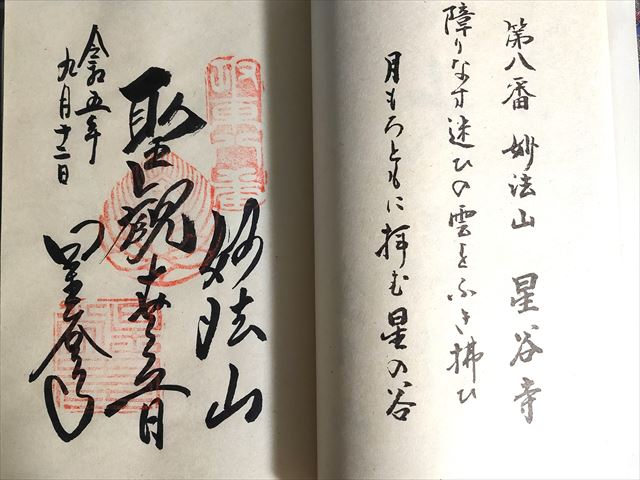 第八番 妙法山 星谷寺
障りなす迷ひの雲をふき拂ひ
月もろともに拝む星の谷
坂東八番
妙法山
聖観世音
星谷寺
令和五年
九月十二日